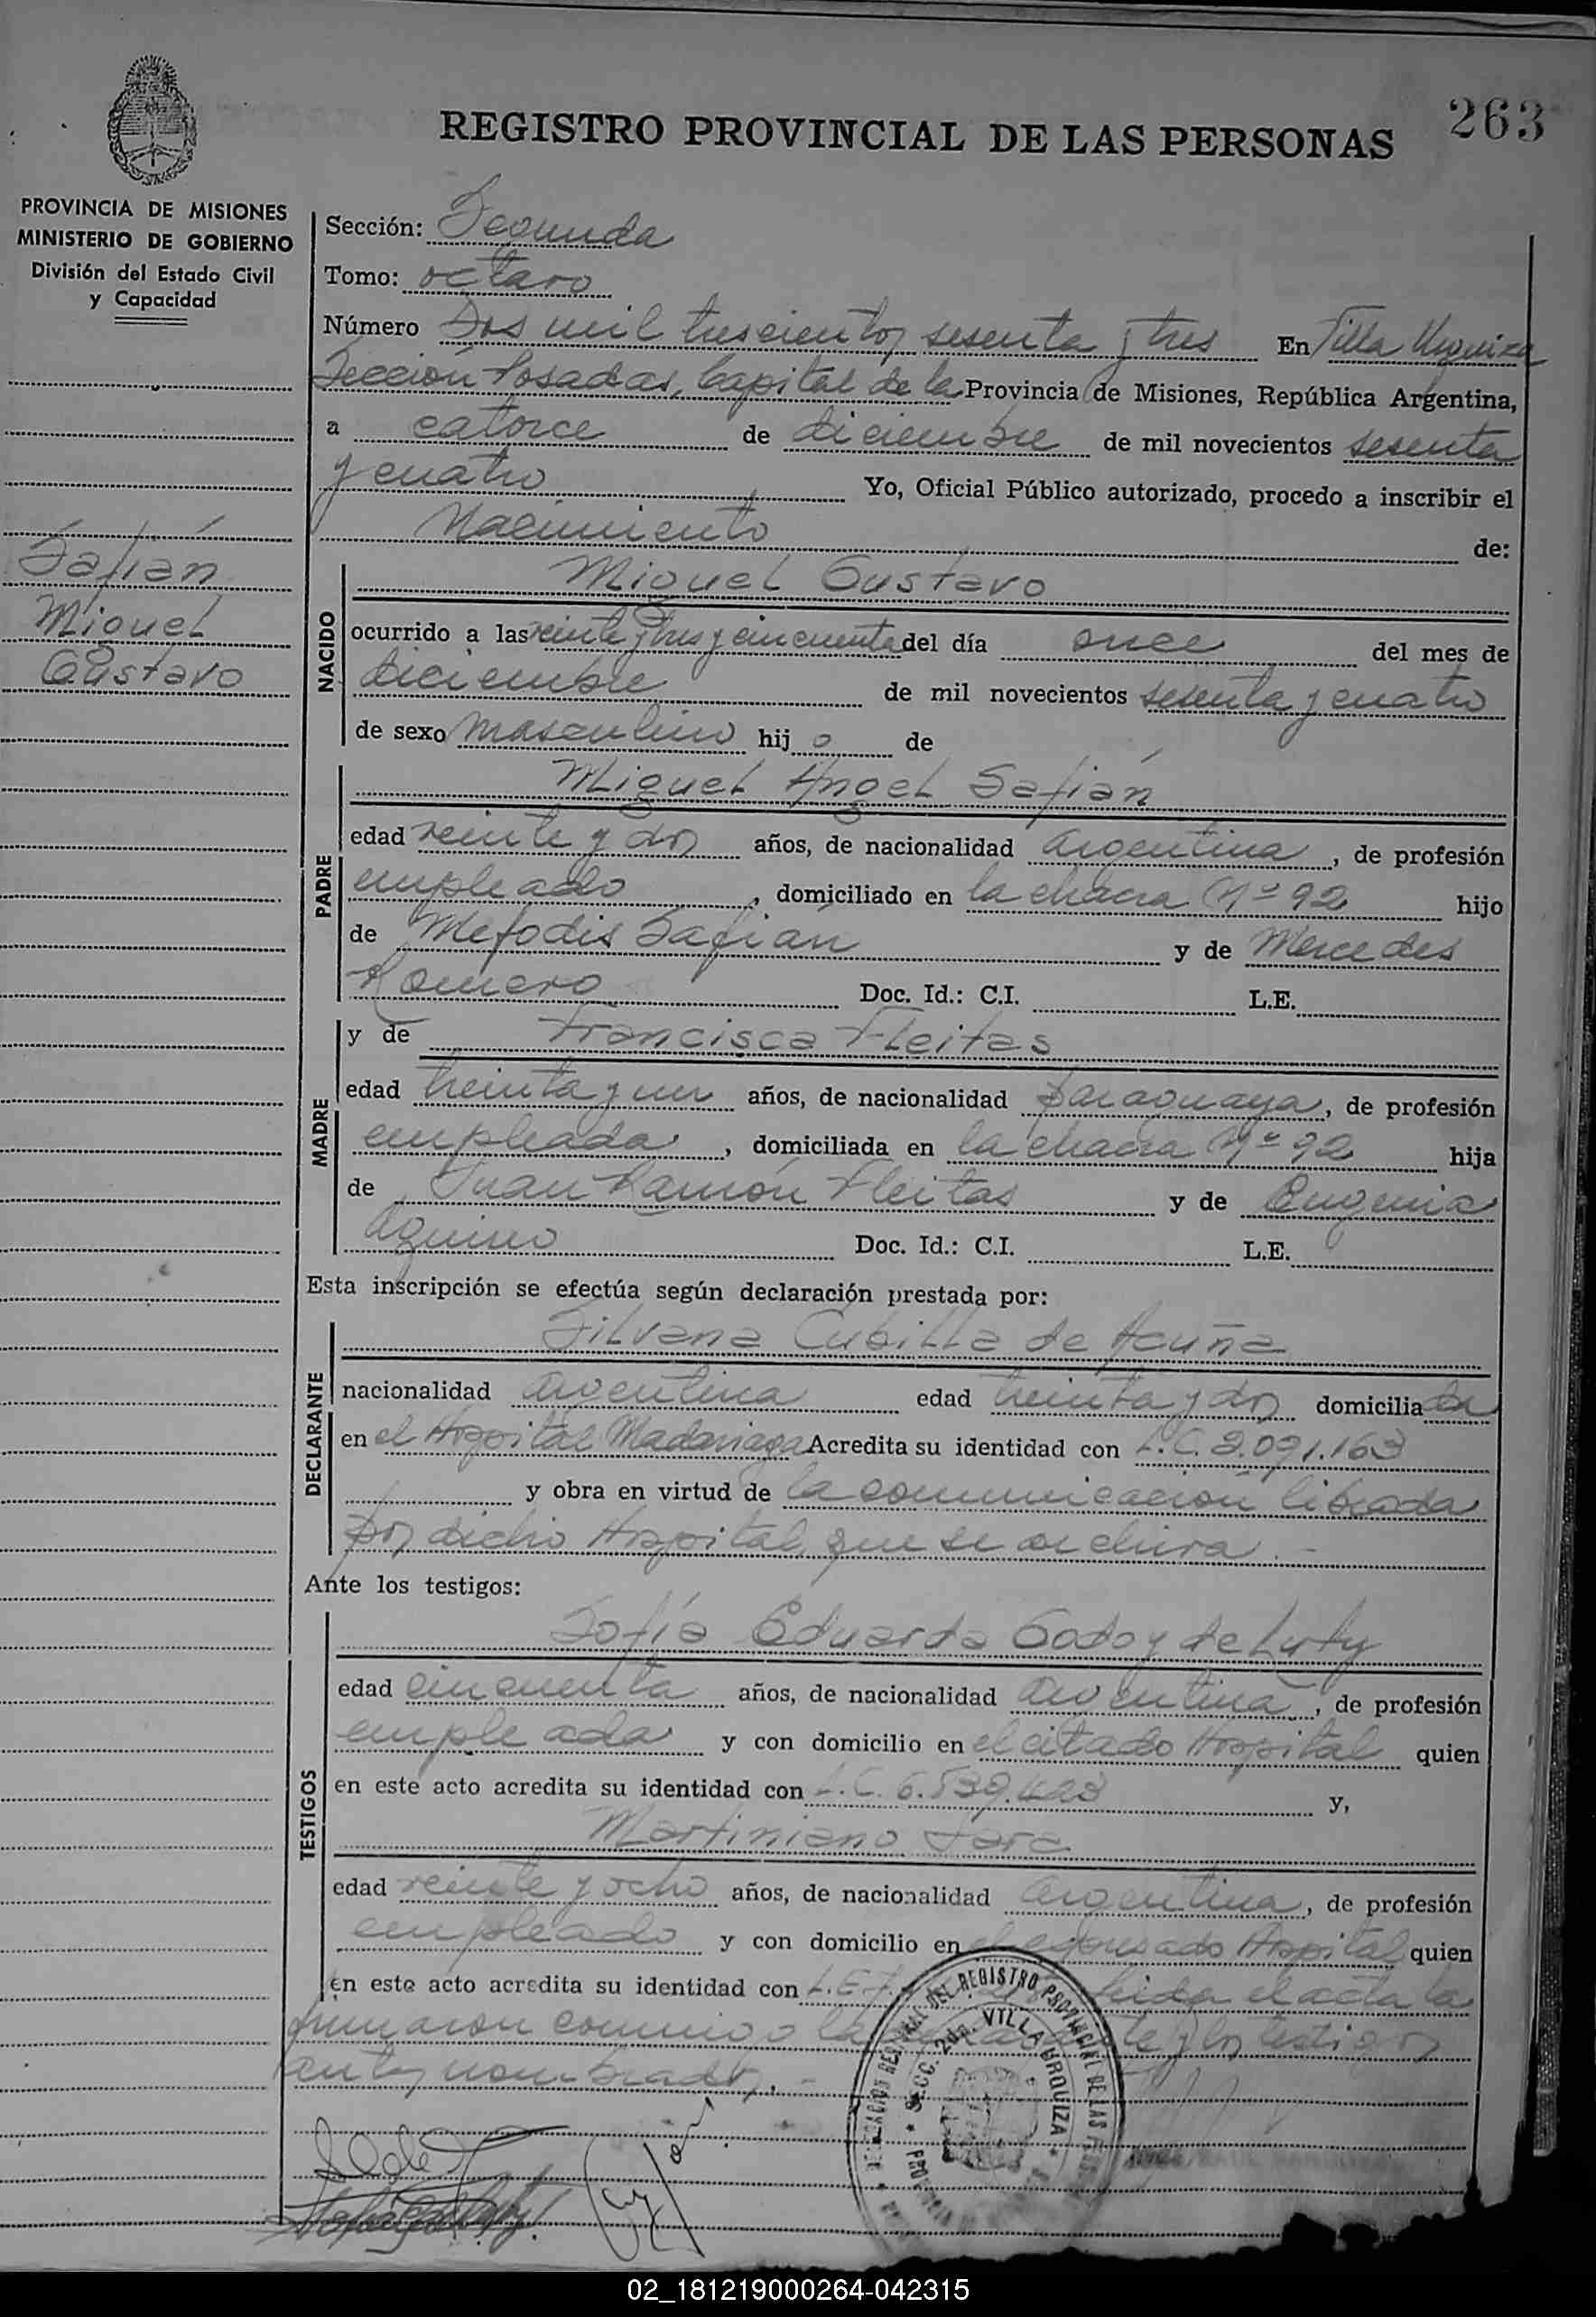 263
REGISTRO PROVINCIAL DE LAS PERSONAS
PROVINCIA DE MISIONES
MINISTERIO DE GOBIERNO
División del Estado Civil
y Capacidad
Safián
Miguel
Gustavo
Sección: Segunda
Tomo: octavo
Número Dos mil trescientos sesenta y tres En Villa Urquiza
Sección Posadas, Capital de la Provincia de Misiones, República Argentina,
a catorce de diciembre de mil novecientos sesenta
y cuatro Yo, Oficial Público autorizado, procedo a inscribir el
Nacimiento de:
NACIDO
Miguel Gustavo
ocurrido a las veinte y tres y cincuenta del día once del mes de
diciembre de mil novecientos sesenta y cuatro
de sexo masculino hij o de
PADRE
Miguel Angel Safián
edad veinte y dos años, de nacionalidad argentina, de profesión
empleado, domiciliado en la chacra Nº 92 hijo
de Mefodis Safián y de Mercedes
Romero Doc. Id.: C.I. L.E.
MADRE
y de Francisca Fleitas
edad treinta y un años, de nacionalidad paraguaya, de profesión
empleada, domiciliada en la chacra Nº 92 hija
de Juan Ramón Fleitas y de Eugenia
Aquino Doc. Id.: C.I. L.E.
Esta inscripción se efectúa según declaración prestada por:
DECLARANTE
Silvana Cubilla de Acuña
nacionalidad argentina edad treinta y dos domicilia da
en el Hospital Madariaga Acredita su identidad con L.C. 2.091.163
y obra en virtud de la comunicación librada
por dicho Hospital, que se archiva.-
Ante los testigos:
TESTIGOS
Sofía Eduarda Godoy de Luty
edad cincuenta años, de nacionalidad argentina, de profesión
empleada y con domicilio en el citado Hospital quien
en este acto acredita su identidad con L.C. 6.539.423 y,
Martiniano Jara
edad veinte y ocho años, de nacionalidad argentina, de profesión
empleado y con domicilio en el expresado Hospital quien
en este acto acredita su identidad con L.E. 7. el acta la
firmaron conmigo la y los testigos
antes nombrados.-
DEL REGISTRO PROVINCIAL DE LAS
SECC. 2da. VILLA URQUIZA
02_181219000264-042315